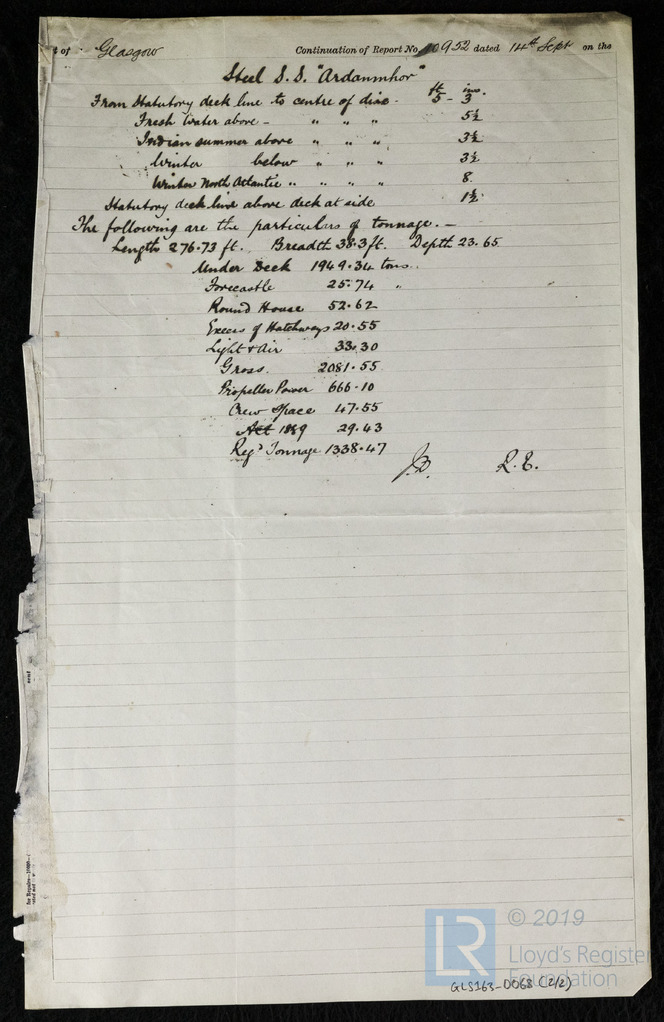 t of Glasgow Continuation of Report No. 10952 dated 14th Sept on the
Steel S.S. "Ardanmhor"
ft ins.
From Statutory deck line to centre of disc - 5 - 3
Fresh Water above - " " " 5½
Indian summer above " " " 3½
Winter below " " " 3½
Winter North Atlantic " " " " 8
Statutory deck line above deck at side 1½
The following are the particulars of tonnage. -
Length 276.73 ft. Breadth 38.3 ft. Depth 23.65
Under Deck 1949.34 tons.
Forecastle 25.74 "
Round House 52.62
Excess of Hatchways 20.55
Light & Air 33.30
Gross. 2081.55
Propeller Power 666.10
Crew Space 47.55
Act 1889 29.43
Regd Tonnage 1338.47
J.D. R.E.
© 2019
LR
Lloyd's Register
Foundation
GLS163-0068 (2/2)